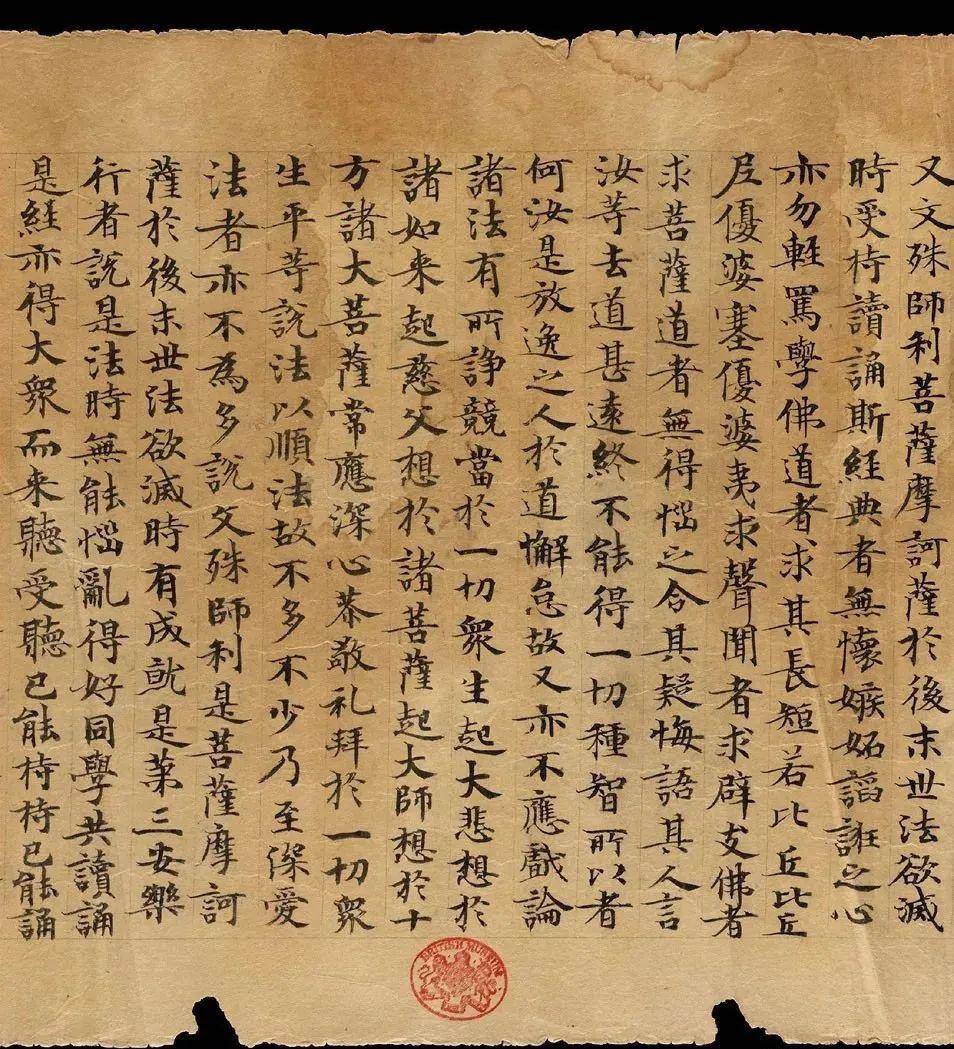 又文殊師利菩薩摩訶薩於後末世法欲滅
時受持讀誦斯經典者無懷嫉妬諂誑之心
亦勿輕罵學佛道者求其長短若比丘比丘
尼優婆塞優婆夷求聲聞者求辟支佛者
求菩薩道者無得惱之令其疑悔語其人言
汝等去道甚遠終不能得一切種智所以者
何汝是放逸之人於道懈怠故又亦不應戲論
諸法有所諍競當於一切眾生起大悲想於
諸如来起慈父想於諸菩薩起大師想於十
方諸大菩薩常應深心恭敬礼拜於一切眾
生平等說法以順法故不多不少乃至深愛
法者亦不為多說文殊師利是菩薩摩訶
薩於後末世法欲滅時有成就是第三安樂
行者說是法時無能惱亂得好同學共讀誦
是經亦得大眾而来聽受聽已能持持已能誦
BRITISH MUSEUM